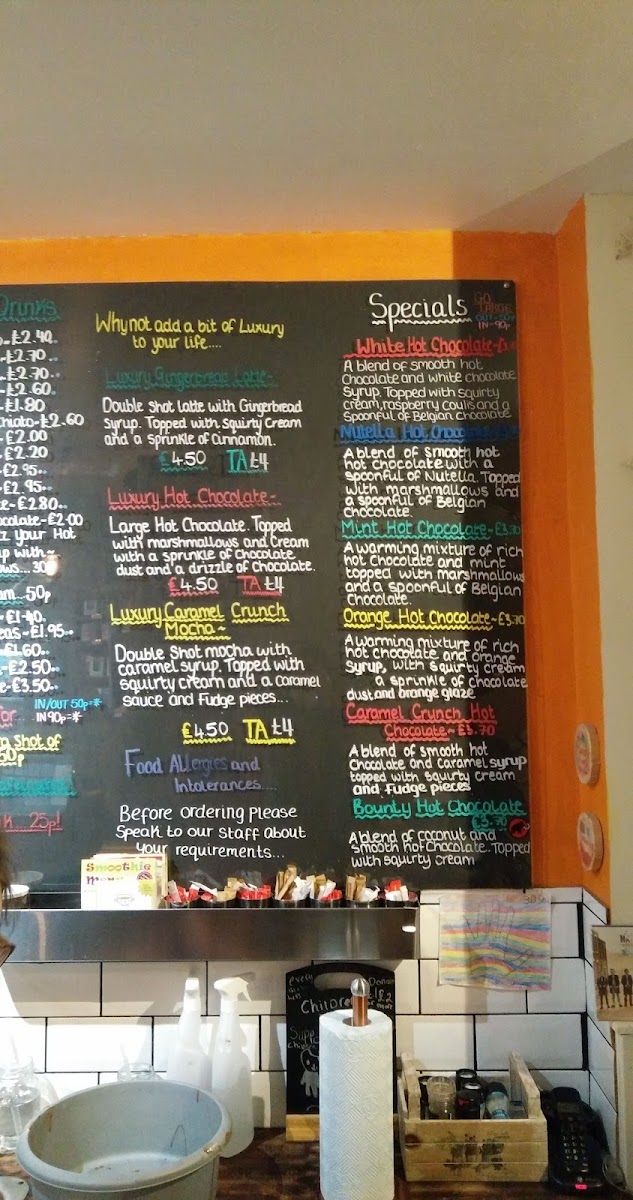 Drinks
£2.40
£2.70
£2.70
£2.60
£1.80
£2.60
£2.00
£2.20
£2.95
£2.95
£2.80
£2.00
Your Hot
with~
30p
50p
£1.40
£1.95
£1.60
£2.50
£3.50
IN/OUT 50p=*
IN 90p=*
a Shot of
50p
25p!
Why not add a bit of Luxury
to your life....
Luxury Gingerbread Latte~
Double shot latte with Gingerbread
Syrup. Topped with Squirty Cream
and a sprinkle of Cinnamon.
£4.50 TA £4
Luxury Hot Chocolate~
Large Hot Chocolate. Topped
with marshmallows and Cream
with a sprinkle of chocolate
dust and a drizzle of chocolate.
£4.50 TA £4
Luxury Caramel Crunch
Mocha~
Double Shot mocha with
caramel syrup. Topped with
squirty cream and a caramel
sauce and fudge pieces...
£4.50 TA £4
Food Allergies and
Intolerances....
Before ordering Please
Speak to our staff about
your requirements...
Specials
GO
LARGE
OUT=50p
IN=90p
White Hot Chocolate
A blend of smooth hot
chocolate and white chocolate
syrup. Topped with squirty
cream, raspberry coulis and a
spoonful of Belgian Chocolate
Nutella Hot Chocolate
A blend of smooth hot
hot chocolate with a
spoonful of Nutella. Topped
with marshmallows and
a spoonful of Belgian
chocolate.
Mint Hot Chocolate~£3.70
A warming mixture of rich
hot chocolate and mint
topped with marshmallows
and a spoonful of Belgian
Chocolate.
Orange Hot Chocolate~£3.70
A warming mixture of rich
hot chocolate and orange
syrup, with squirty cream
a sprinkle of chocolate
dust and orange glaze
Caramel Crunch Hot
Chocolate~£3.70
A blend of smooth hot
chocolate and caramel syrup
topped with squirty cream
and fudge pieces
Bounty Hot Chocolate
£3.70
A blend of coconut and
smooth hot chocolate. Topped
with squirty cream
Smoothie
Menu